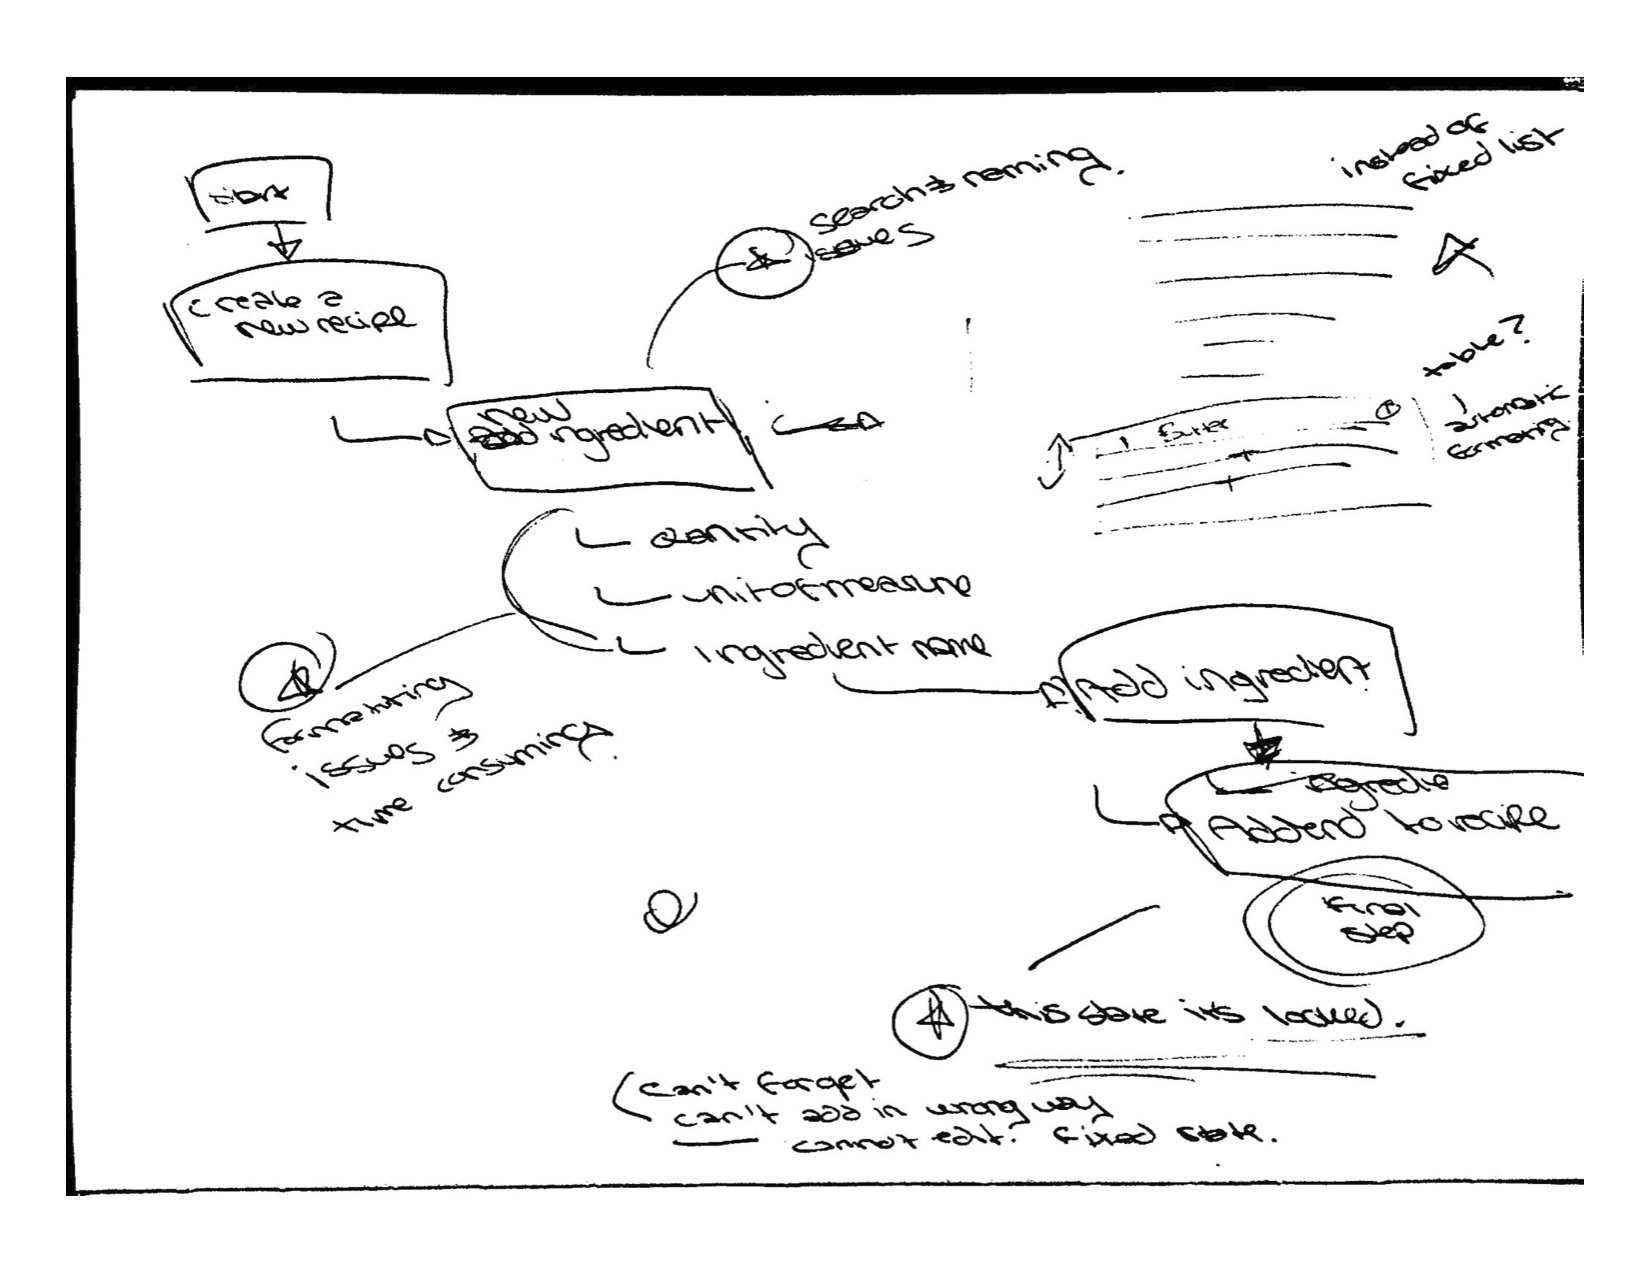 start
create a
new recipe
new
add ingredient
search & naming
issues
instead of
fixed list
table?
automatic
formatting
quantity
unit of measure
ingredient name
formatting
issues &
time consuming.
Add ingredient
ingredie
Added to recipe
final
step
this state its locked.
can't forget
can't add in wrong way
cannot edit. fixed state.